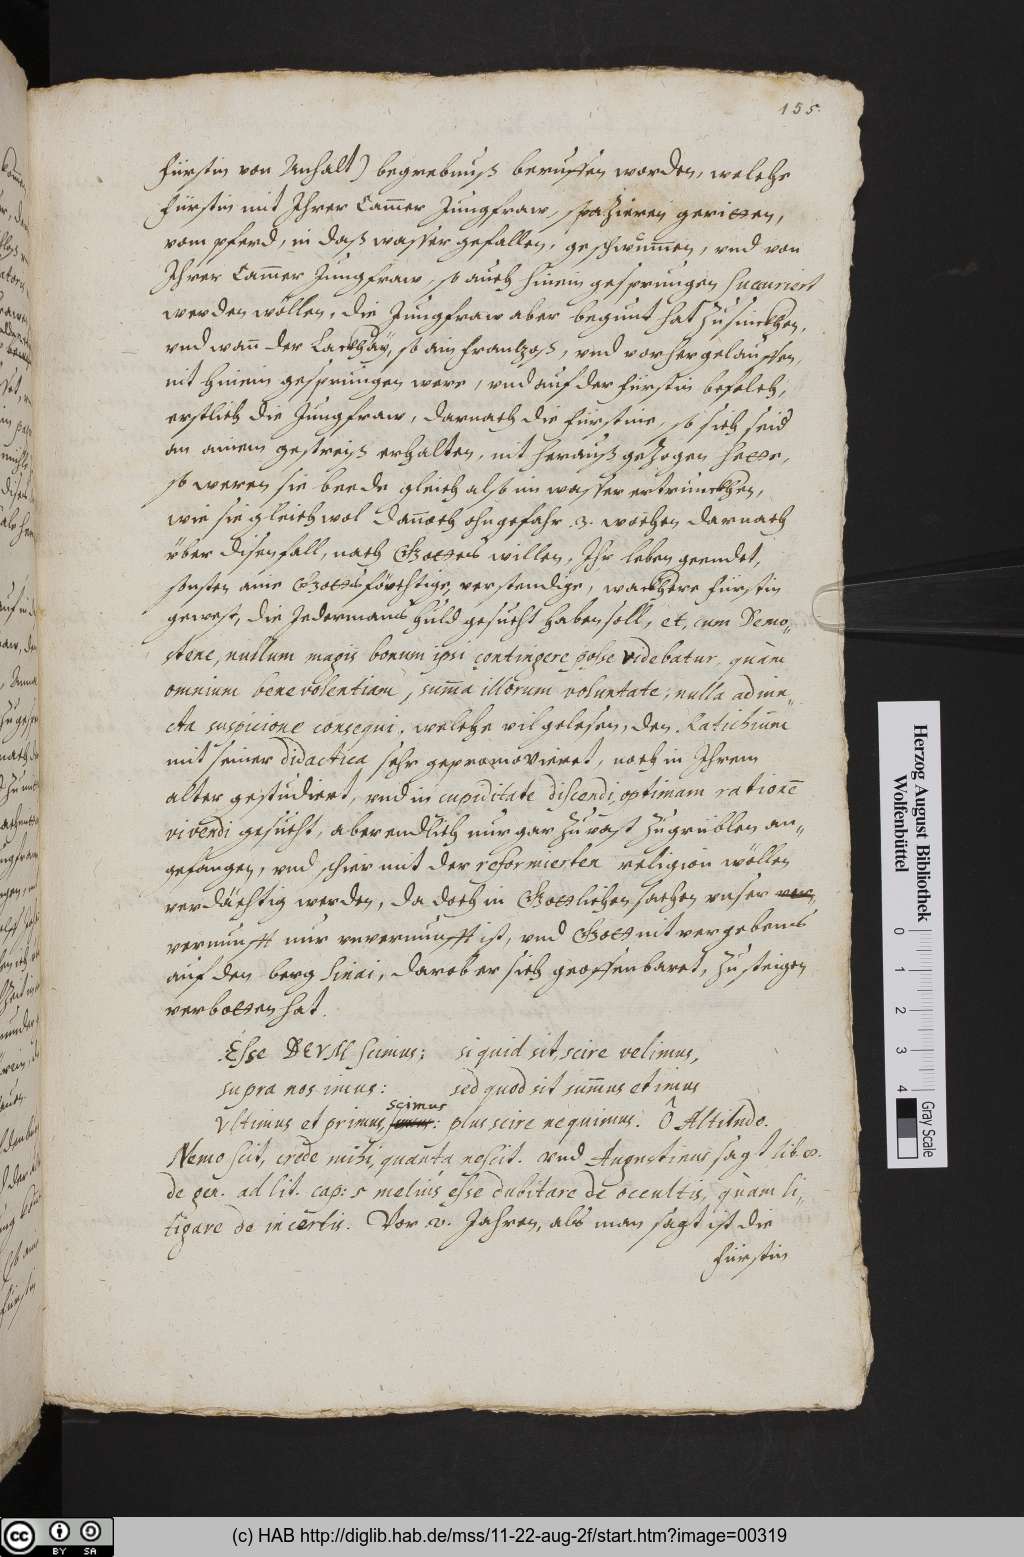 155.
Fürstin von Anhalt) begrebnuß beruffen worden, welche
Fürstin mit Ihrer Cam̄er Jungfraw, spatzieren geritten,
vom pferd, in daß wasser gefallen, geschwum̄en, vnd von
Ihrer Cam̄er Jungfraw, so auch hinein gesprungen succuriert
werden wöllen, die Jungfraw aber begunt hat zusinckhen,
vnd wan̄ der Lackhäy, so ain frantzoß, vnd vorher geloffen,
nit hinein gesprungen were, vnd auf der Fürstin befelch,
erstlich die Jungfraw, darnach die Fürstine, so sich seid
an ainem gestreiß erhalten, nit herauß gezogen hette,
so weren sie beede gleich alß im wasser ertrunckhen,
wie sie gleich wol dan̄och ohngefahr .3. wochen darnach
über disen fall, nach Gottes willen, Ihr leben geendet,
sonsten aine Gottsförchtige, verstendige, wackhere Fürstin
gewest, die Jedermans huld gesucht haben soll, et, cum Demo„
stene, nullum magis bonum ipsi contingere posse videbatur, quàm
omnium benevolentiam, sum̄a illorum voluntate, nulla adiun„
cta suspicione consequi. welche vil gelesen, den Ratichium
mit seiner didactica sehr gepromovieret, noch in Ihrem
alter gestudiert, vnd in cupiditate discendi, optimam rationē
vivendi gesucht, aber endtlich nur gar zu vast zugrüblen an„
gefangen, vnd schier mit der reformierten religion wöllen
verdächtig werden, da doch in Göttlichen sachen vnser ver„
vernunfft nur vnvernunfft ist, vnd Gott nit vergebens
auf den berg Sinai, darob er sich geoffenbaret, zu steigen
verbotten hat.
Esse DEVM scimus; si quid sit, scire velimus,
supra nos imus: sed quod sit sum̄us et imus
scimus
Vltimus et primus, imus: plus scire nequimus. Ô Altitudo.
Nemo scit, crede mihi, quanta nescit. vnd Augustinus sagt lib. 8.
de gen. ad lit. cap: 5 melius esse dubitare de occultis, quam li„
tigare de incertis. Vor .2. Jahren, als man sagt ist die
Fürstin
Herzog August Bibliothek
Wolfenbüttel
0 1 2 3 4
Gray Scale
cc BY SA
(c) HAB http://diglib.hab.de/mss/11-22-aug-2f/start.htm?image=00319